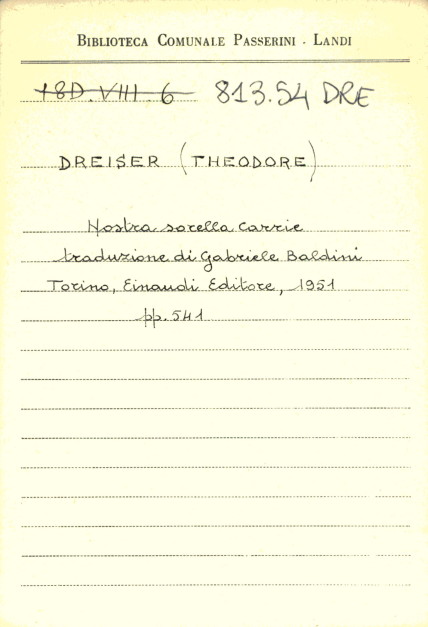 BIBLIOTECA COMUNALE PASSERINI - LANDI
18D.VIII.6 813.54 DRE
DREISER (THEODORE)
Nostra sorella Carrie
traduzione di Gabriele Baldini
Torino, Einaudi Editore, 1951
pp. 541